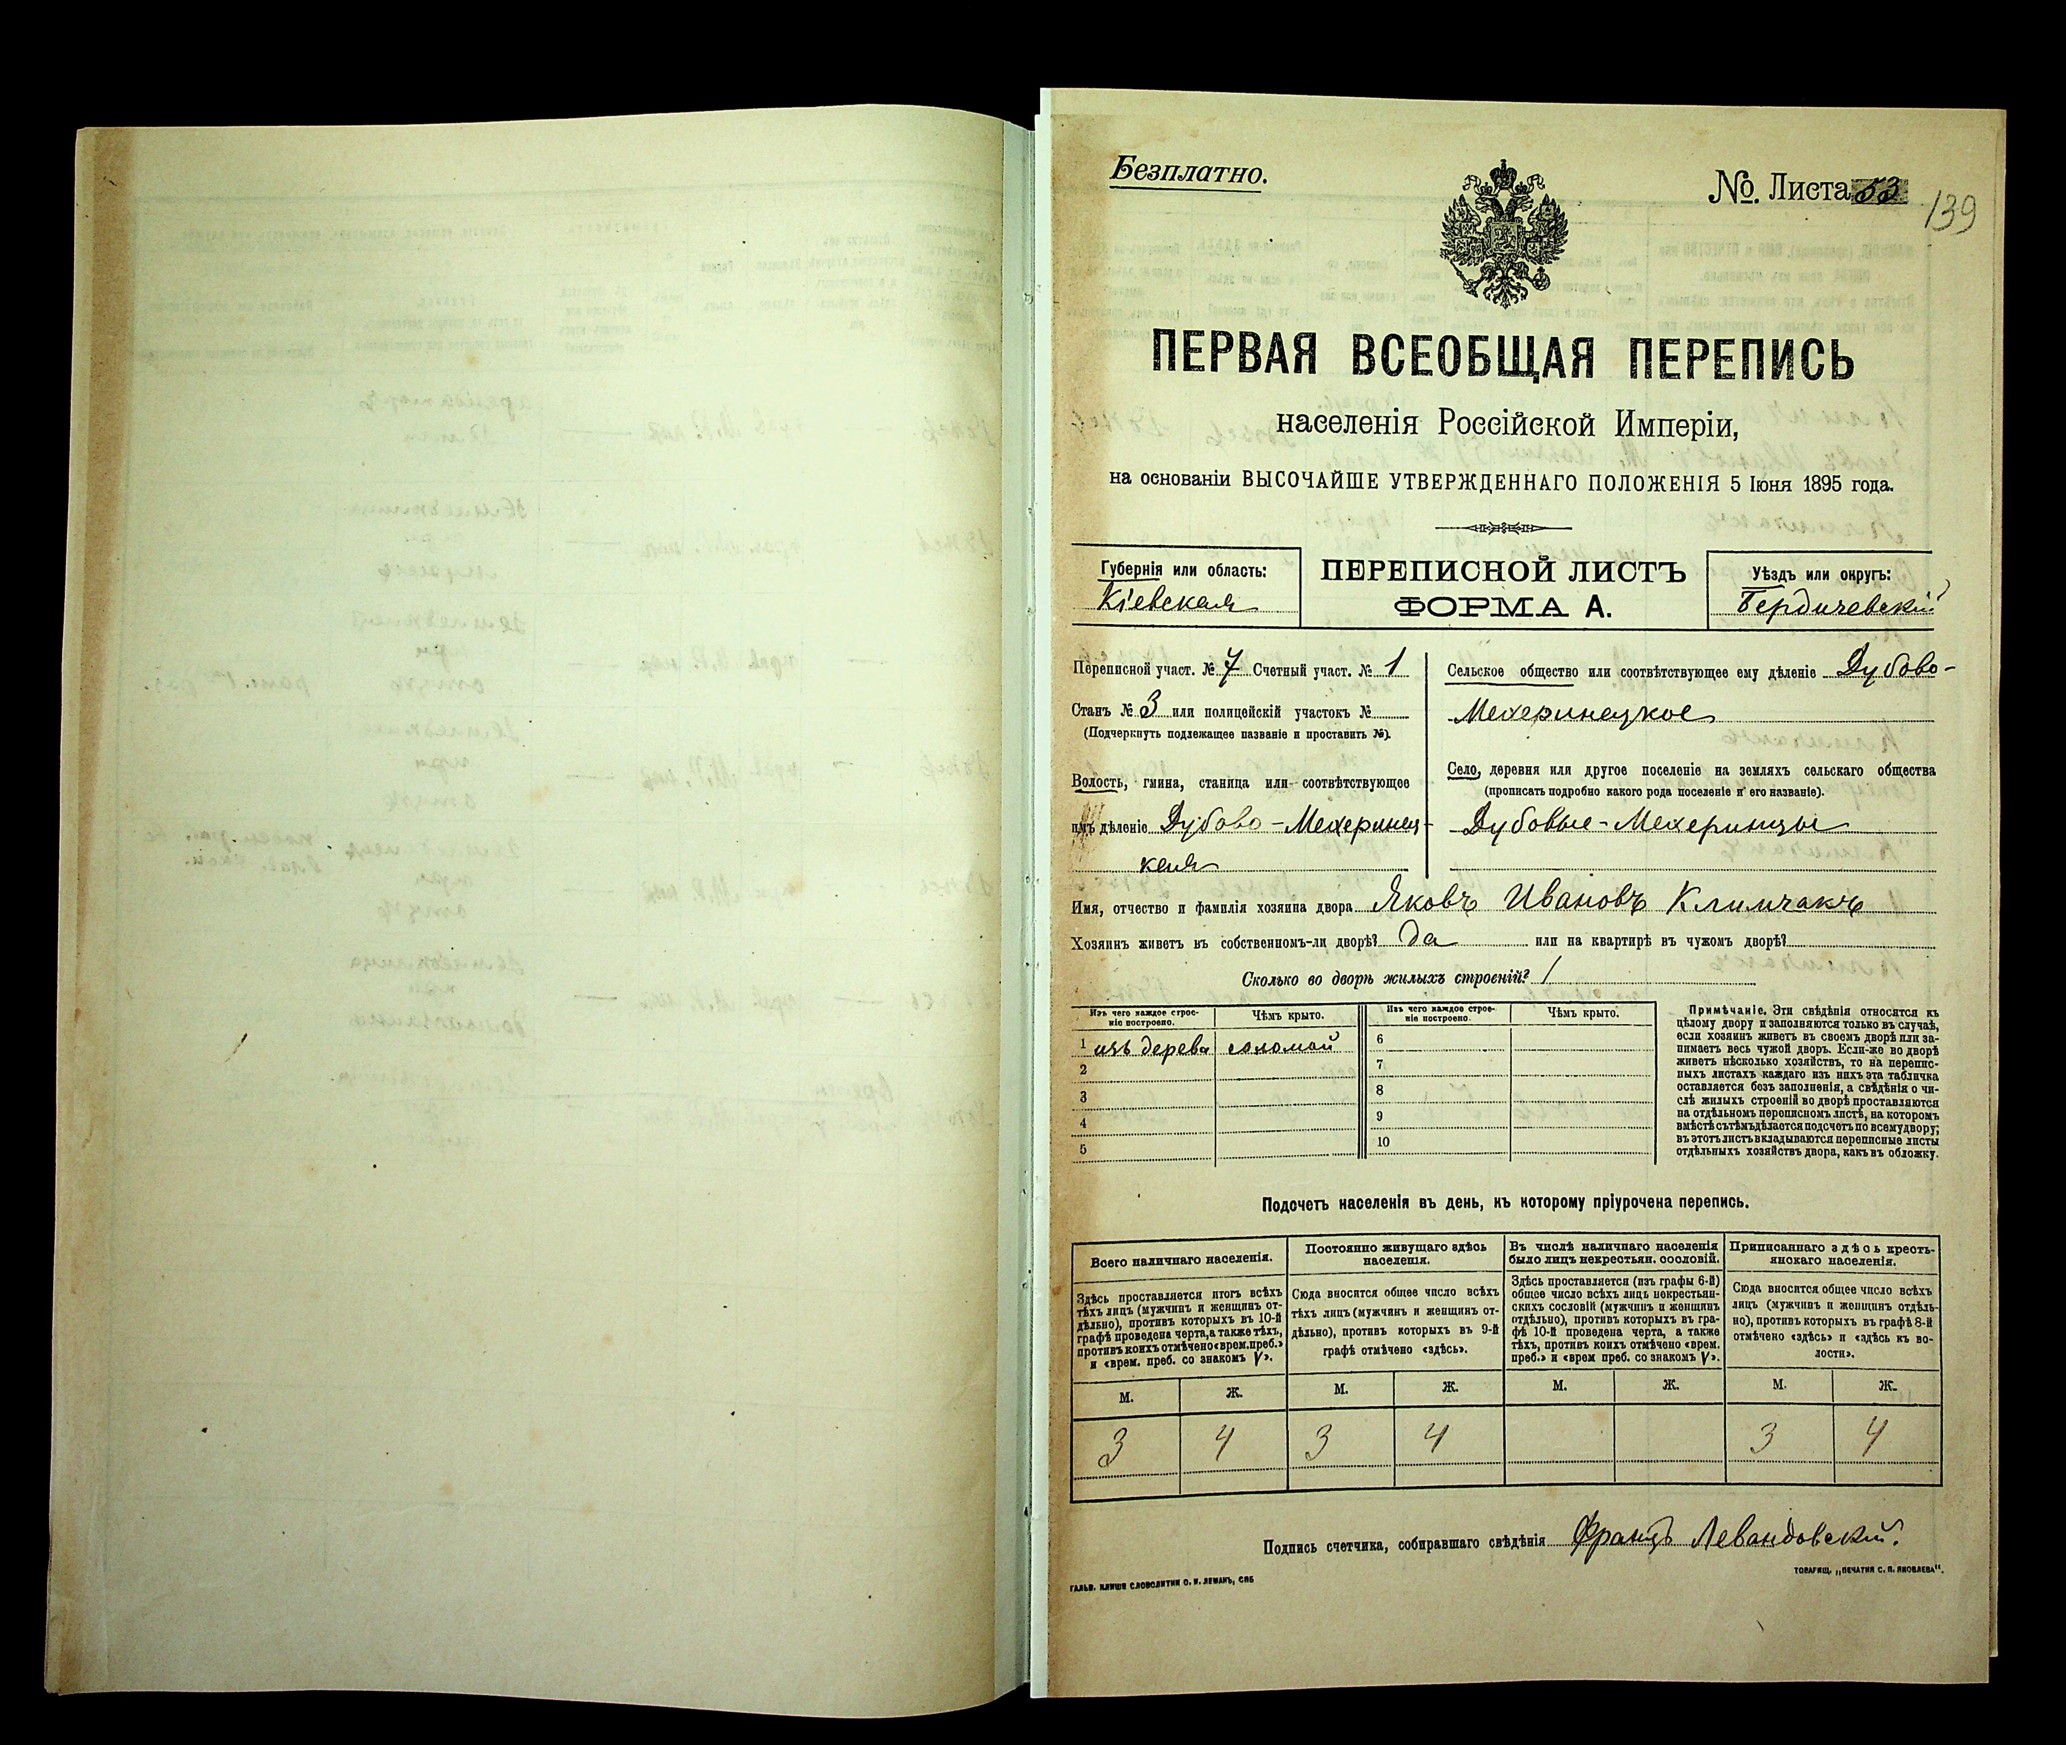 Безплатно.
№. Листа 53
139
ПЕРВАЯ ВСЕОБЩАЯ ПЕРЕПИСЬ
населенія Россійской Имперіи,
на основаніи ВЫСОЧАЙШЕ УТВЕРЖДЕННАГО ПОЛОЖЕНІЯ 5 Іюня 1895 года.
Губернія или область:
Кіевская
ПЕРЕПИСНОЙ ЛИСТЪ
ФОРМА А.
Уѣздъ или округъ:
Бердичевскій
Переписной участ. № 7 Счетный участ. № 1
Станъ № 3 или полицейскій участокъ №
(Подчеркнуть подлежащее названіе и проставить №).
Волость, гмина, станица или соотвѣтствующее
имъ дѣленіе Дубово-Мехеринец-
кая
Сельское общество или соотвѣтствующее ему дѣленіе Дубово-
Мехеринецкое
Село, деревня или другое поселеніе на земляхъ сельскаго общества
(прописать подробно какого рода поселеніе и его названіе).
Дубовые-Мехеринцы
Имя, отчество и фамилія хозяина двора Яковъ Ивановъ Климчакъ
Хозяинъ живетъ въ собственномъ-ли дворѣ? Да или на квартирѣ въ чужомъ дворѣ?
Сколько во дворѣ жилыхъ строеній? 1
Изъ чего каждое строе-
ніе построено.
Чѣмъ крыто.
Изъ чего каждое строе-
ніе построено.
Чѣмъ крыто.
1 изъ дерева соломой
2
3
4
5
6
7
8
9
10
Примѣчаніе. Эти свѣдѣнія относятся къ
цѣлому двору и заполняются только въ случаѣ,
если хозяинъ живетъ въ своемъ дворѣ или за-
нимаетъ весь чужой дворъ. Если-же во дворѣ
живетъ нѣсколько хозяйствъ, то на перепис-
ныхъ листахъ каждаго изъ нихъ эта табличка
оставляется безъ заполненія, а свѣдѣнія о чи-
слѣ жилыхъ строеній во дворѣ проставляются
на отдѣльномъ переписномъ листѣ, на которомъ
вмѣстѣ съ тѣмъ дѣлается подсчетъ по всему двору;
въ этотъ листъ вкладываются переписные листы
отдѣльныхъ хозяйствъ двора, какъ въ обложку.
Подсчетъ населенія въ день, къ которому пріурочена перепись.
Всего наличнаго населенія.
Здѣсь проставляется итогъ всѣхъ
тѣхъ лицъ (мужчинъ и женщинъ от-
дѣльно), противъ которыхъ въ 10-й
графѣ проведена черта, а также тѣхъ,
противъ коихъ отмѣчено «врем. преб.»
и «врем. преб. со знакомъ V».
Постоянно живущаго здѣсь
населенія.
Сюда вносится общее число всѣхъ
тѣхъ лицъ (мужчинъ и женщинъ от-
дѣльно), противъ которыхъ въ 9-й
графѣ отмѣчено «здѣсь».
Въ числѣ наличнаго населенія
было лицъ некрестьян. сословій.
Здѣсь проставляется (изъ графы 6-й)
общее число всѣхъ лицъ некрестьян-
скихъ сословій (мужчинъ и женщинъ
отдѣльно), противъ которыхъ въ гра-
фѣ 10-й проведена черта, а также
тѣхъ, противъ коихъ отмѣчено «врем.
преб.» и «врем преб. со знакомъ V».
Приписаннаго здѣсь кресть-
янскаго населенія.
Сюда вносится общее число всѣхъ
лицъ (мужчинъ и женщинъ отдѣль-
но), противъ которыхъ въ графѣ 8-й
отмѣчено «здѣсь» и «здѣсь къ во-
лости».
М. Ж. М. Ж. М. Ж. М. Ж.
3 4 3 4 3 4
Подпись счетчика, собиравшаго свѣдѣнія Францъ Левандовскій.
ГАЛЬВ. КЛИШЕ СЛОВОЛИТНИ О. И. ЛЕМАНЪ, СПБ
ТОВАРИЩ. „ПЕЧАТНЯ С. П. ЯКОВЛЕВА“.